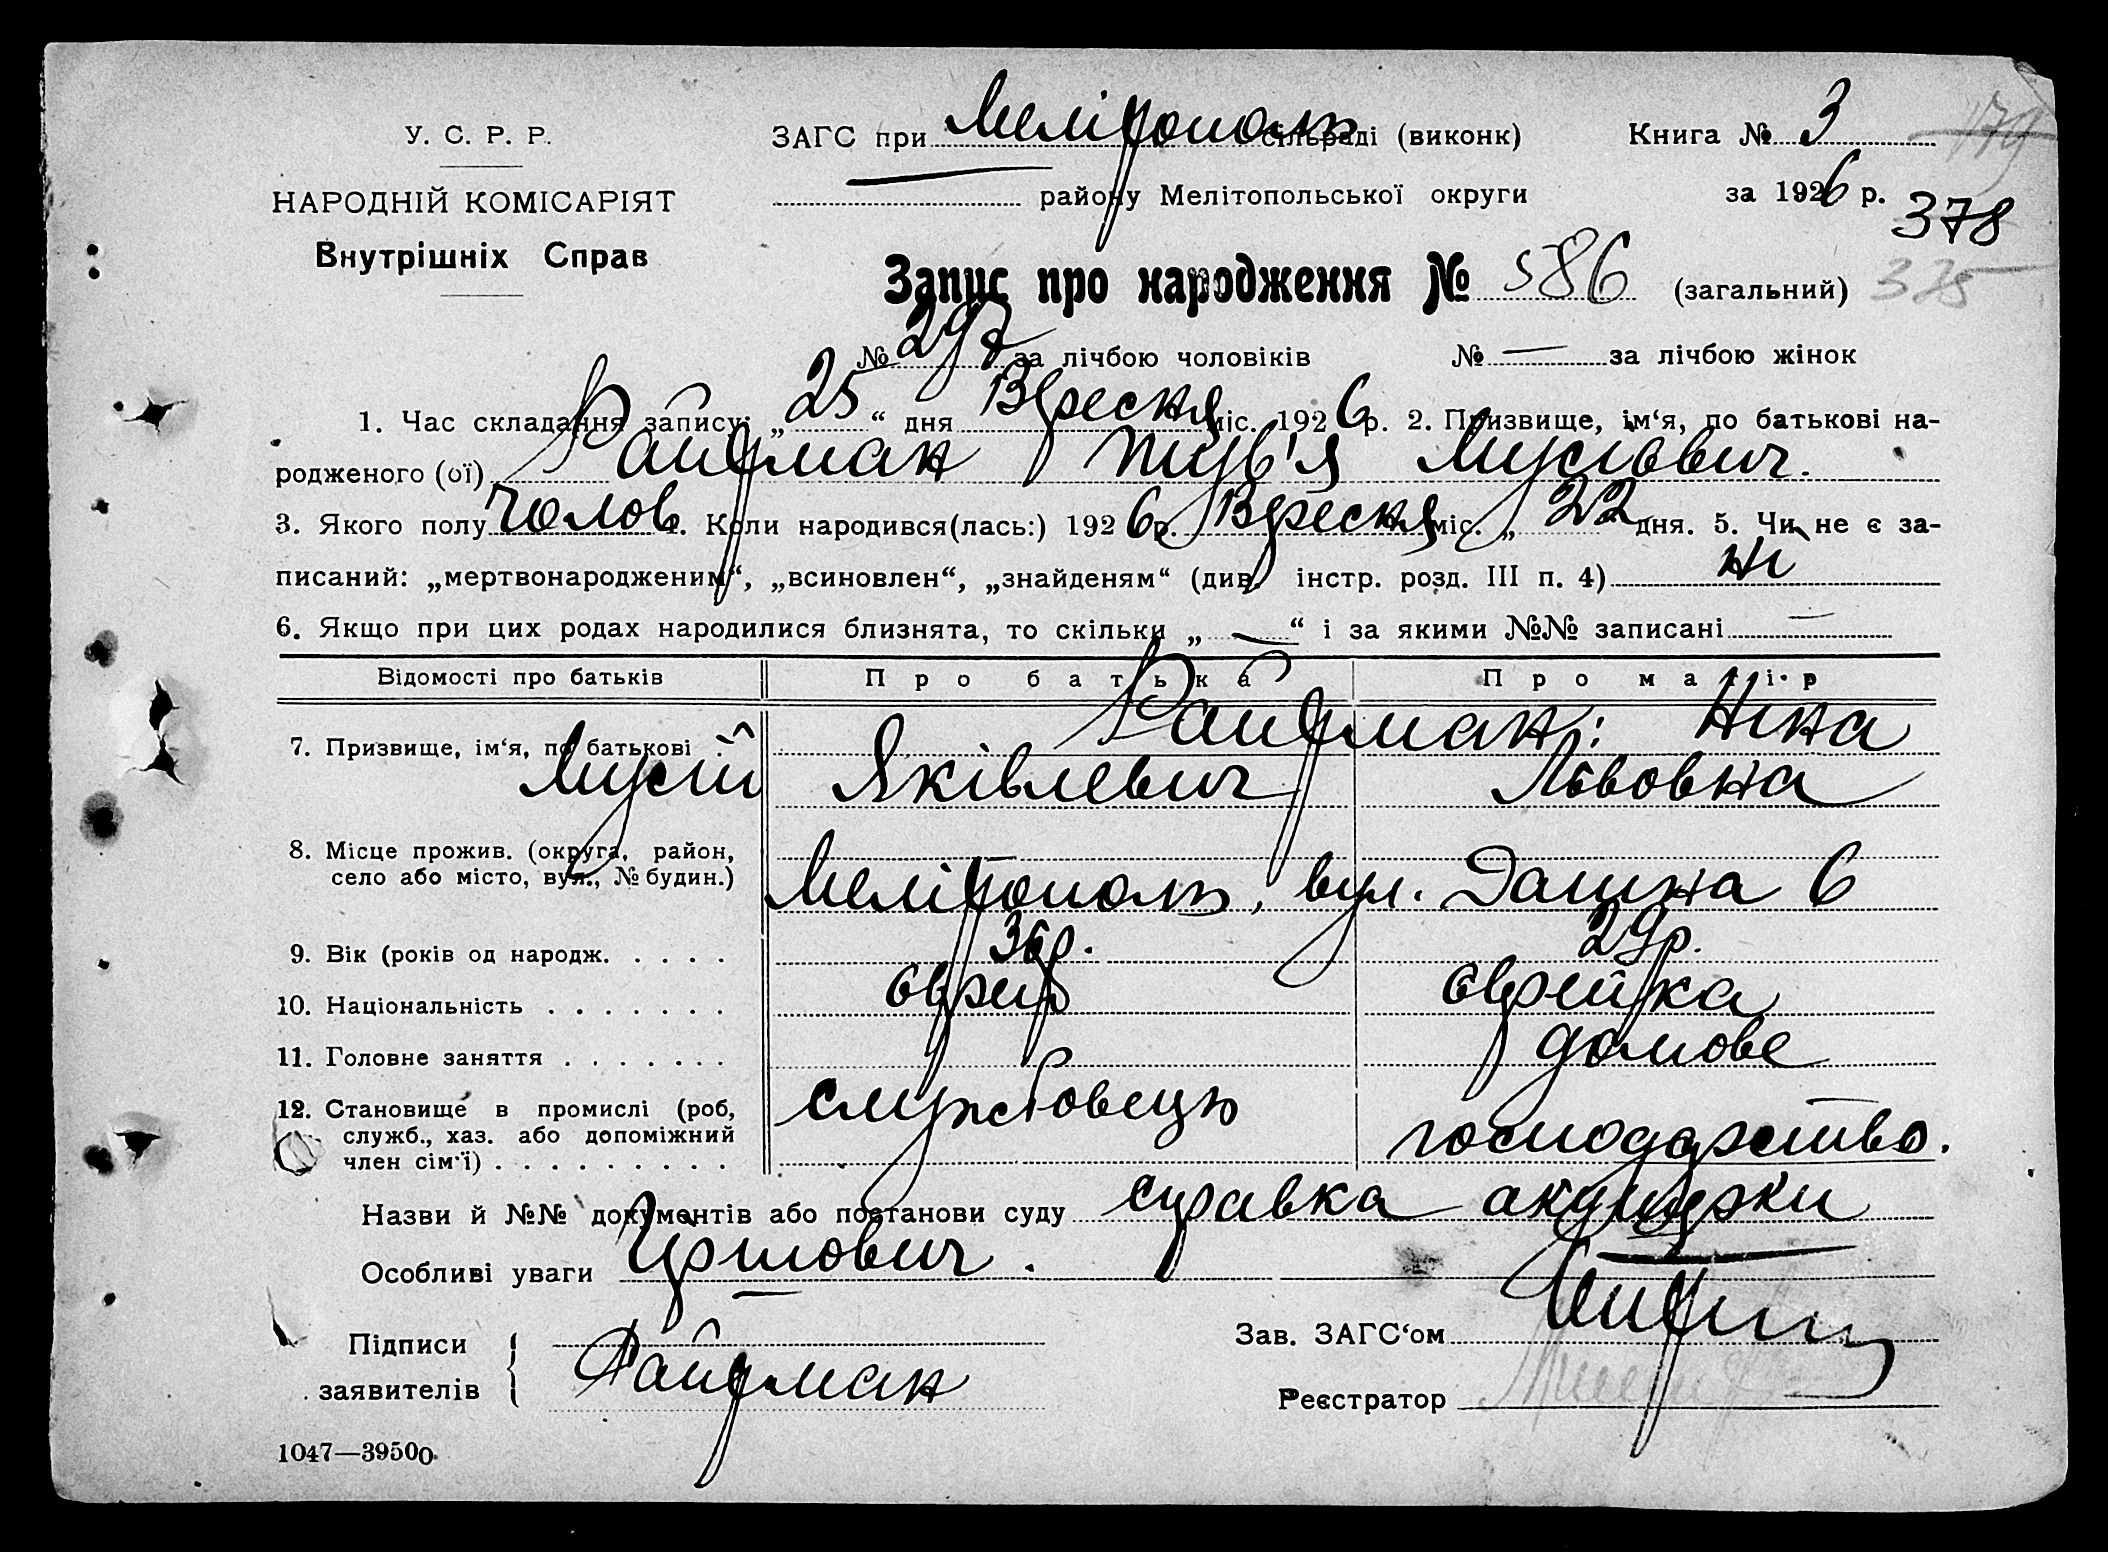 У. С. Р. Р.
НАРОДНІЙ КОМІСАРІЯТ
Внутрішніх Справ
ЗАГС при Мелітополь сільраді (виконк)
району Мелітопольської округи
Книга № 3
179
за 1926 р.
378
Запис про народження № 586 (загальний) 375
№ 297 за лічбою чоловіків № — за лічбою жінок
1. Час складання запису: „25“ дня Вересня міс. 1926 р. 2. Призвище, ім‘я, по батькові на-
родженого (ої) Райдман Тув'я Мусієвич.
3. Якого полу чолов 4. Коли народився(лась:) 1926 р. Вересня міс. „22“ дня. 5. Чи не є за-
писаний: „мертвонародженим“, „всиновлен“, „знайденям“ (див. інстр. розд. III п. 4) ні
6. Якщо при цих родах народилися близнята, то скільки „—“ і за якими №№ записані —
Відомості про батьків Про батька Про матір
7. Призвище, ім‘я, по батькові . Райдман: Ніна
Мусій Яківлевич Львовна
8. Місце прожив. (округа, район,
село або місто, вул., № будин.) Мелітополь, вул. 6
9. Вік (років од народж. . . . . 36р. 29р.
10. Національність . . . . . . . єврей єврейка
11. Головне заняття . . . . . . . домове
12. Становище в промислі (роб, службовець
служб., хаз. або допоміжний господарство.
член сім‘ї) . . . . . . . . .
Назви й №№ документів або постанови суду справка акушерки
Особливі уваги Гіршович.
Підписи
заявителів Райдман
Зав. ЗАГС‘ом
Реєстратор
1047—39500.